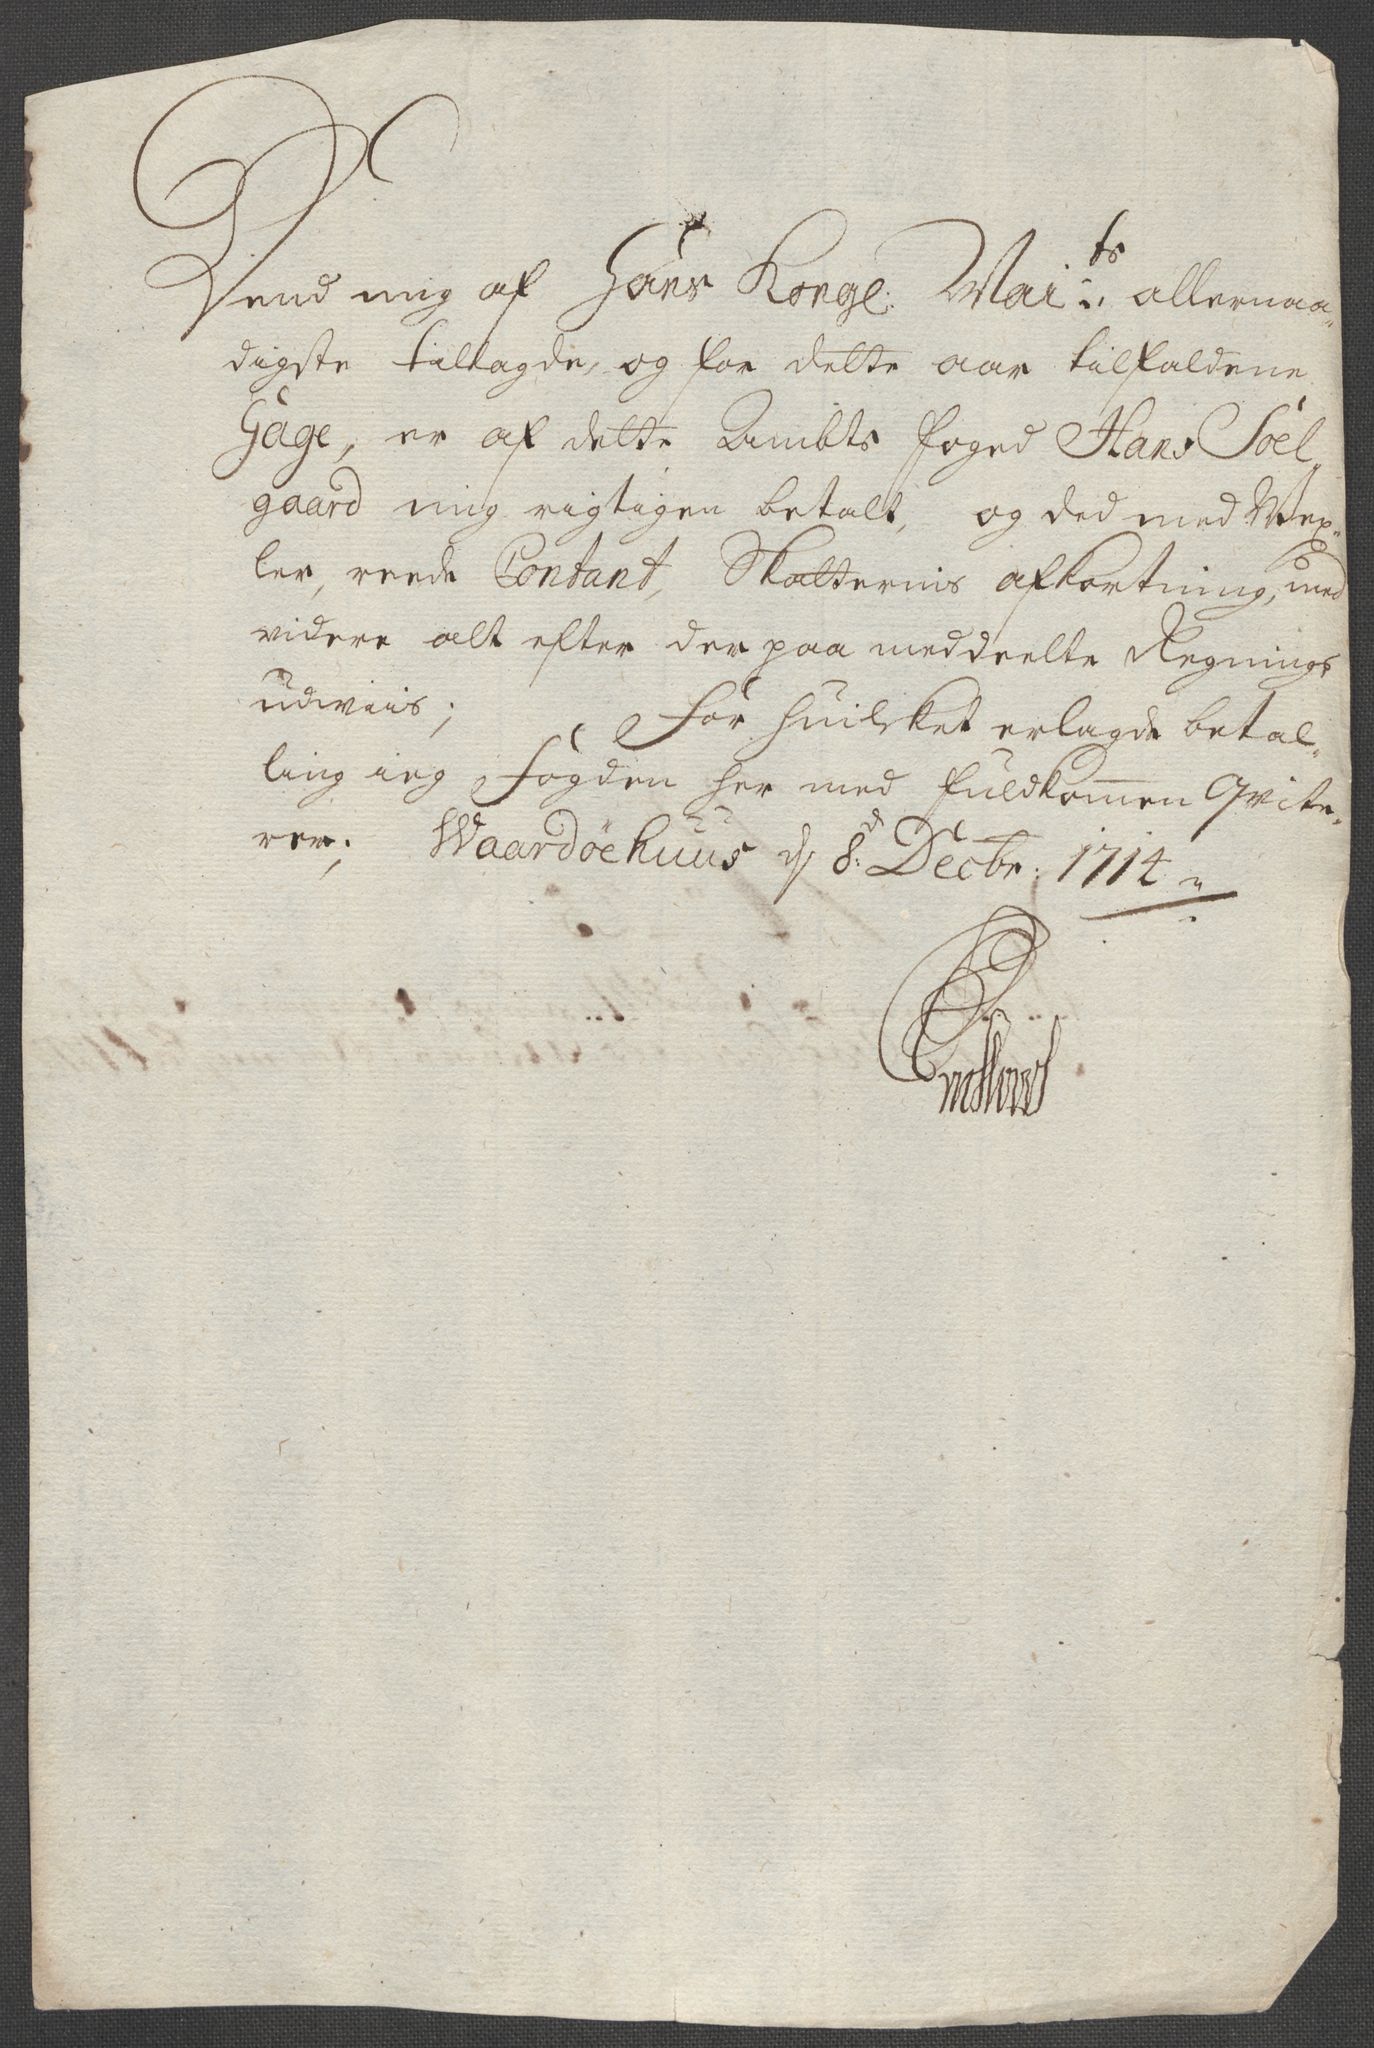 Dend mig af Hans Kongl: Mai:ts allernaa„
digste tillagde, og for dette aar tilfaldene
Gage, er af dette Ambts foged Hans Söel„
gaard mig rigtigen betalt, og ded med Wex„
ler, reede Contant, Skatternis afkortning, med
videre alt efter der paa meddeelte Regnings
udwiis; For huilcket erlagde betal„
ling ieg Fogden her med fuldkommen Qvite„
rer; Waardöehuus d 8:d Decbr: 1714